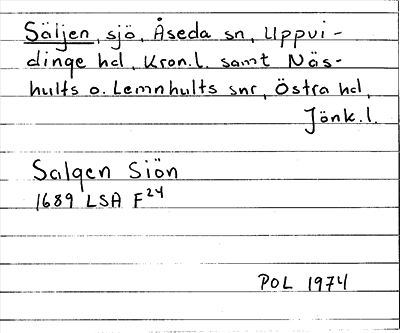 Säljen, sjö, Åseda sn, Uppvi-
dinge hd, Kron.l. samt Näs-
hults o. Lemnhults snr, Östra hd,
Jönk.l.
Salgen Siön
1689 LSA F24
POL 1974